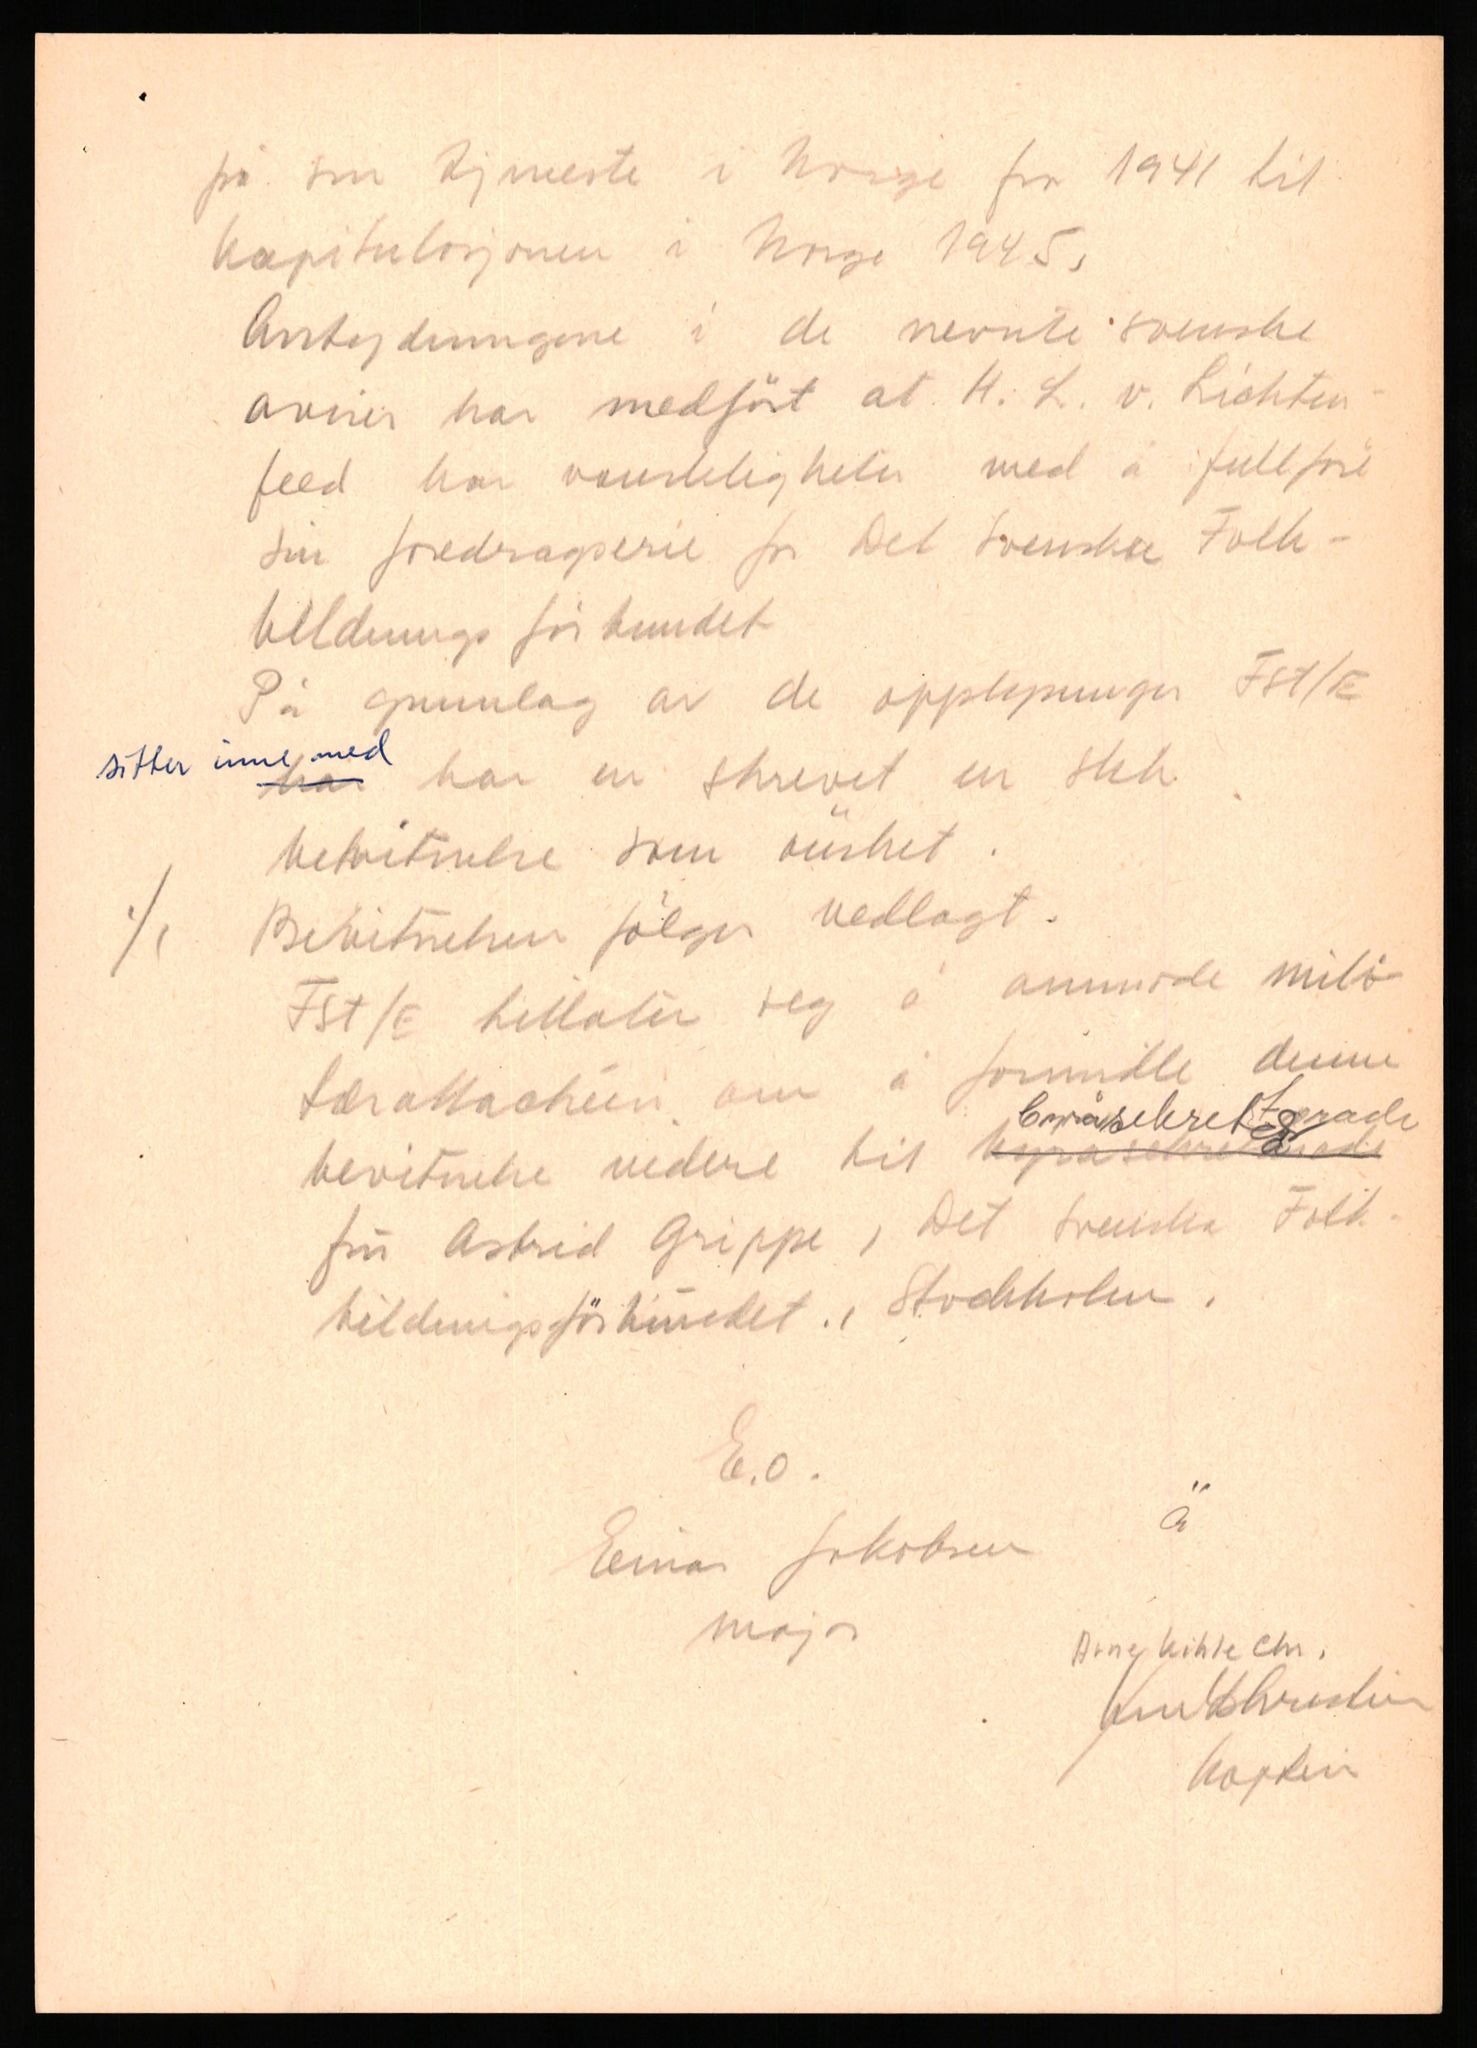 på sin tjeneste i Norge fra 1941 til
kapitulasjonen i Norge 1945.
Antydningene i de nevnte svenske
aviser har medført at H. L. v. Lichten-
feld har vanskeligheter med å fullføre
sin foredragserie for Det Svenska Folk-
bildnings förbundet
På grunnlag av de opplysninger Fst/E
sitter inne med
har har en skrevet en slik
bekvitnelse som ønsket.
./. Bevitnelsen følger vedlagt.
Fst/E tillater seg å anmode mili
tærattachéen om å formidle denne
bevitnelse videre til
fru Astrid Grippe, Det Svenska Folk-
bildningsförbundet., Stockholm.
E.o.
Einar Jakobsen
major
ä
Arne Kihle Chr.
Kaptein